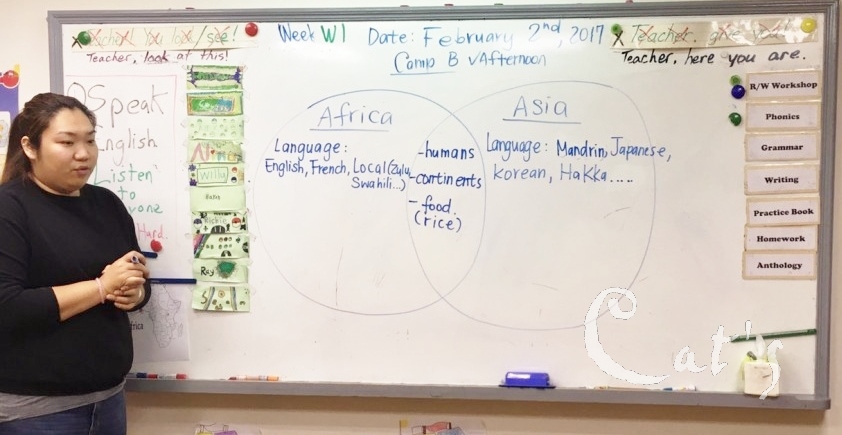 Teacher You look/see!
Teacher, look at this!
Week W1 Date: February 2nd, 2017
Camp B Afternoon
Teacher, give you!
Teacher, here you are.
Speak
English
Listen
to
Hard.
Willy
Ray
Africa
Language:
English, French, Local (Zulu,
Swahili...)
-humans
-continents
- food
(rice)
Asia
Language: Mandrin, Japanese,
Korean, Hakka.....
R/W Workshop
Phonics
Grammar
Writing
Practice Book
Homework
Anthology
Cat's